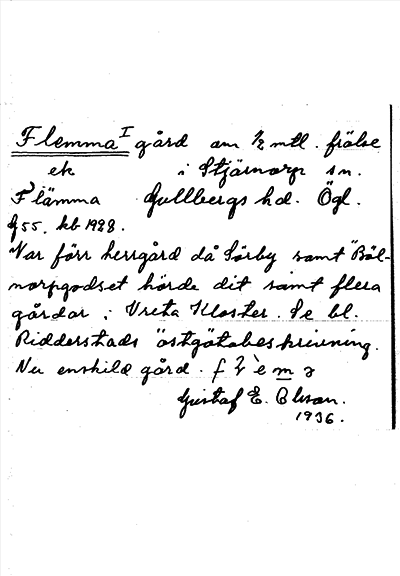 Flemma I gård om 1/2 mtl. frälse
ek i Stjärnorp sn.
Flämma Gullbergs hd. Ögl.
G 55. kb 1928.
Var förr herrgård då Sörby samt Böl-
norpgodset hörde dit samt flera
gårdar i Vreta Kloster. Se bl.
Ridderstads östgötabeskrivning.
Nu enskild gård.
Gustaf E. Olsson.
1936.